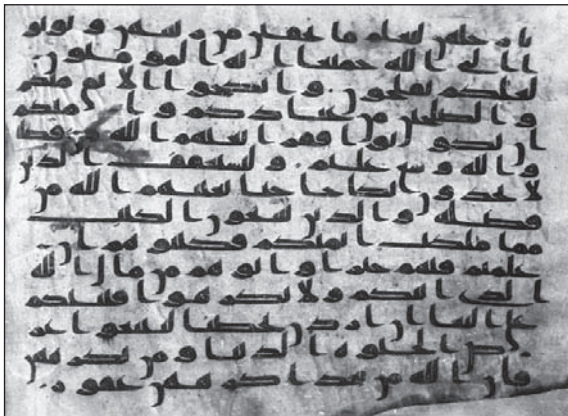 بارجلهن ليعلم ما يخفين من زينتهن وتوبوا
الى الله جميعا ايه المومنون
لعلكم تفلحون وانكحوا الايمى منكم
والصلحين من عبادكم وامايكم
ان يكونوا فقرا يغنهم الله من فضله
والله وسع عليم وليستعفف الذين
لا يجدون نكاحا حتى يغنيهم الله من
فضله والذين يبتغون الكتب
مما ملكت ايمنكم فكتبوهم ان
علمتم فيهم خيرا واتوهم من مال الله
الذي اتيكم ولا تكرهوا فتيتكم
على البغا ان اردن تحصنا لتبتغوا عر
ض الحيوة الدنيا ومن يكرههن
فان الله من بعد اكرههن غفور